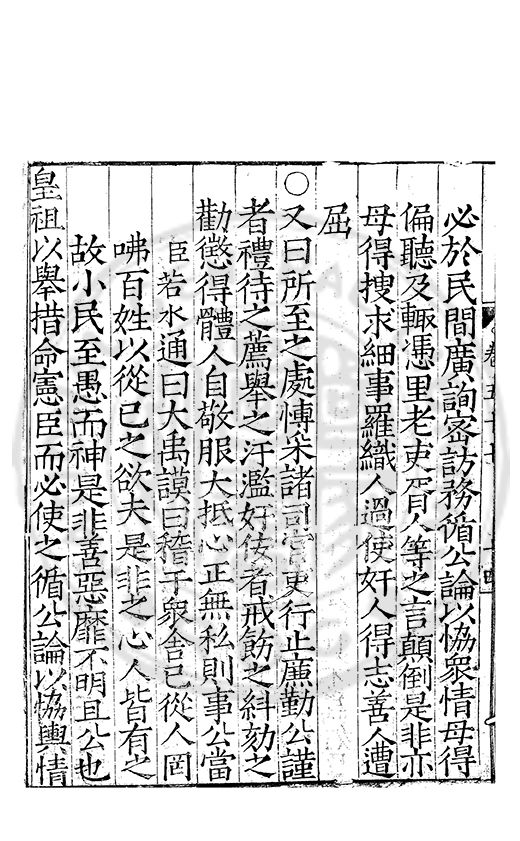 必於民間廣詢密訪務循公論以恊衆情毋得
偏聽及輙憑里老吏胥人等之言顛倒是非亦
毋得搜求細事羅織人過使奸人得志善人遭
屈
○又曰所至之處博采諸司官吏行止廉勤公謹
者禮待之薦舉之汙濫奸佞者戒飭之糾劾之
勸懲得體人自敬服大抵心正無私則事公當
臣若水通曰大禹謨曰稽于衆舍己從人罔
咈百姓以從己之欲夫是非之心人皆有之
故小民至愚而神是非善惡靡不明且公也
皇祖以舉措命憲臣而必使之循公論以恊輿情